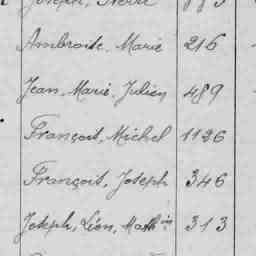 Joseph, Pierre
Ambroise, Marie 216
Jean, Marie, Julien 489
François, Michel 1126
François, Joseph 346
Joseph, Léon, Mathin 313